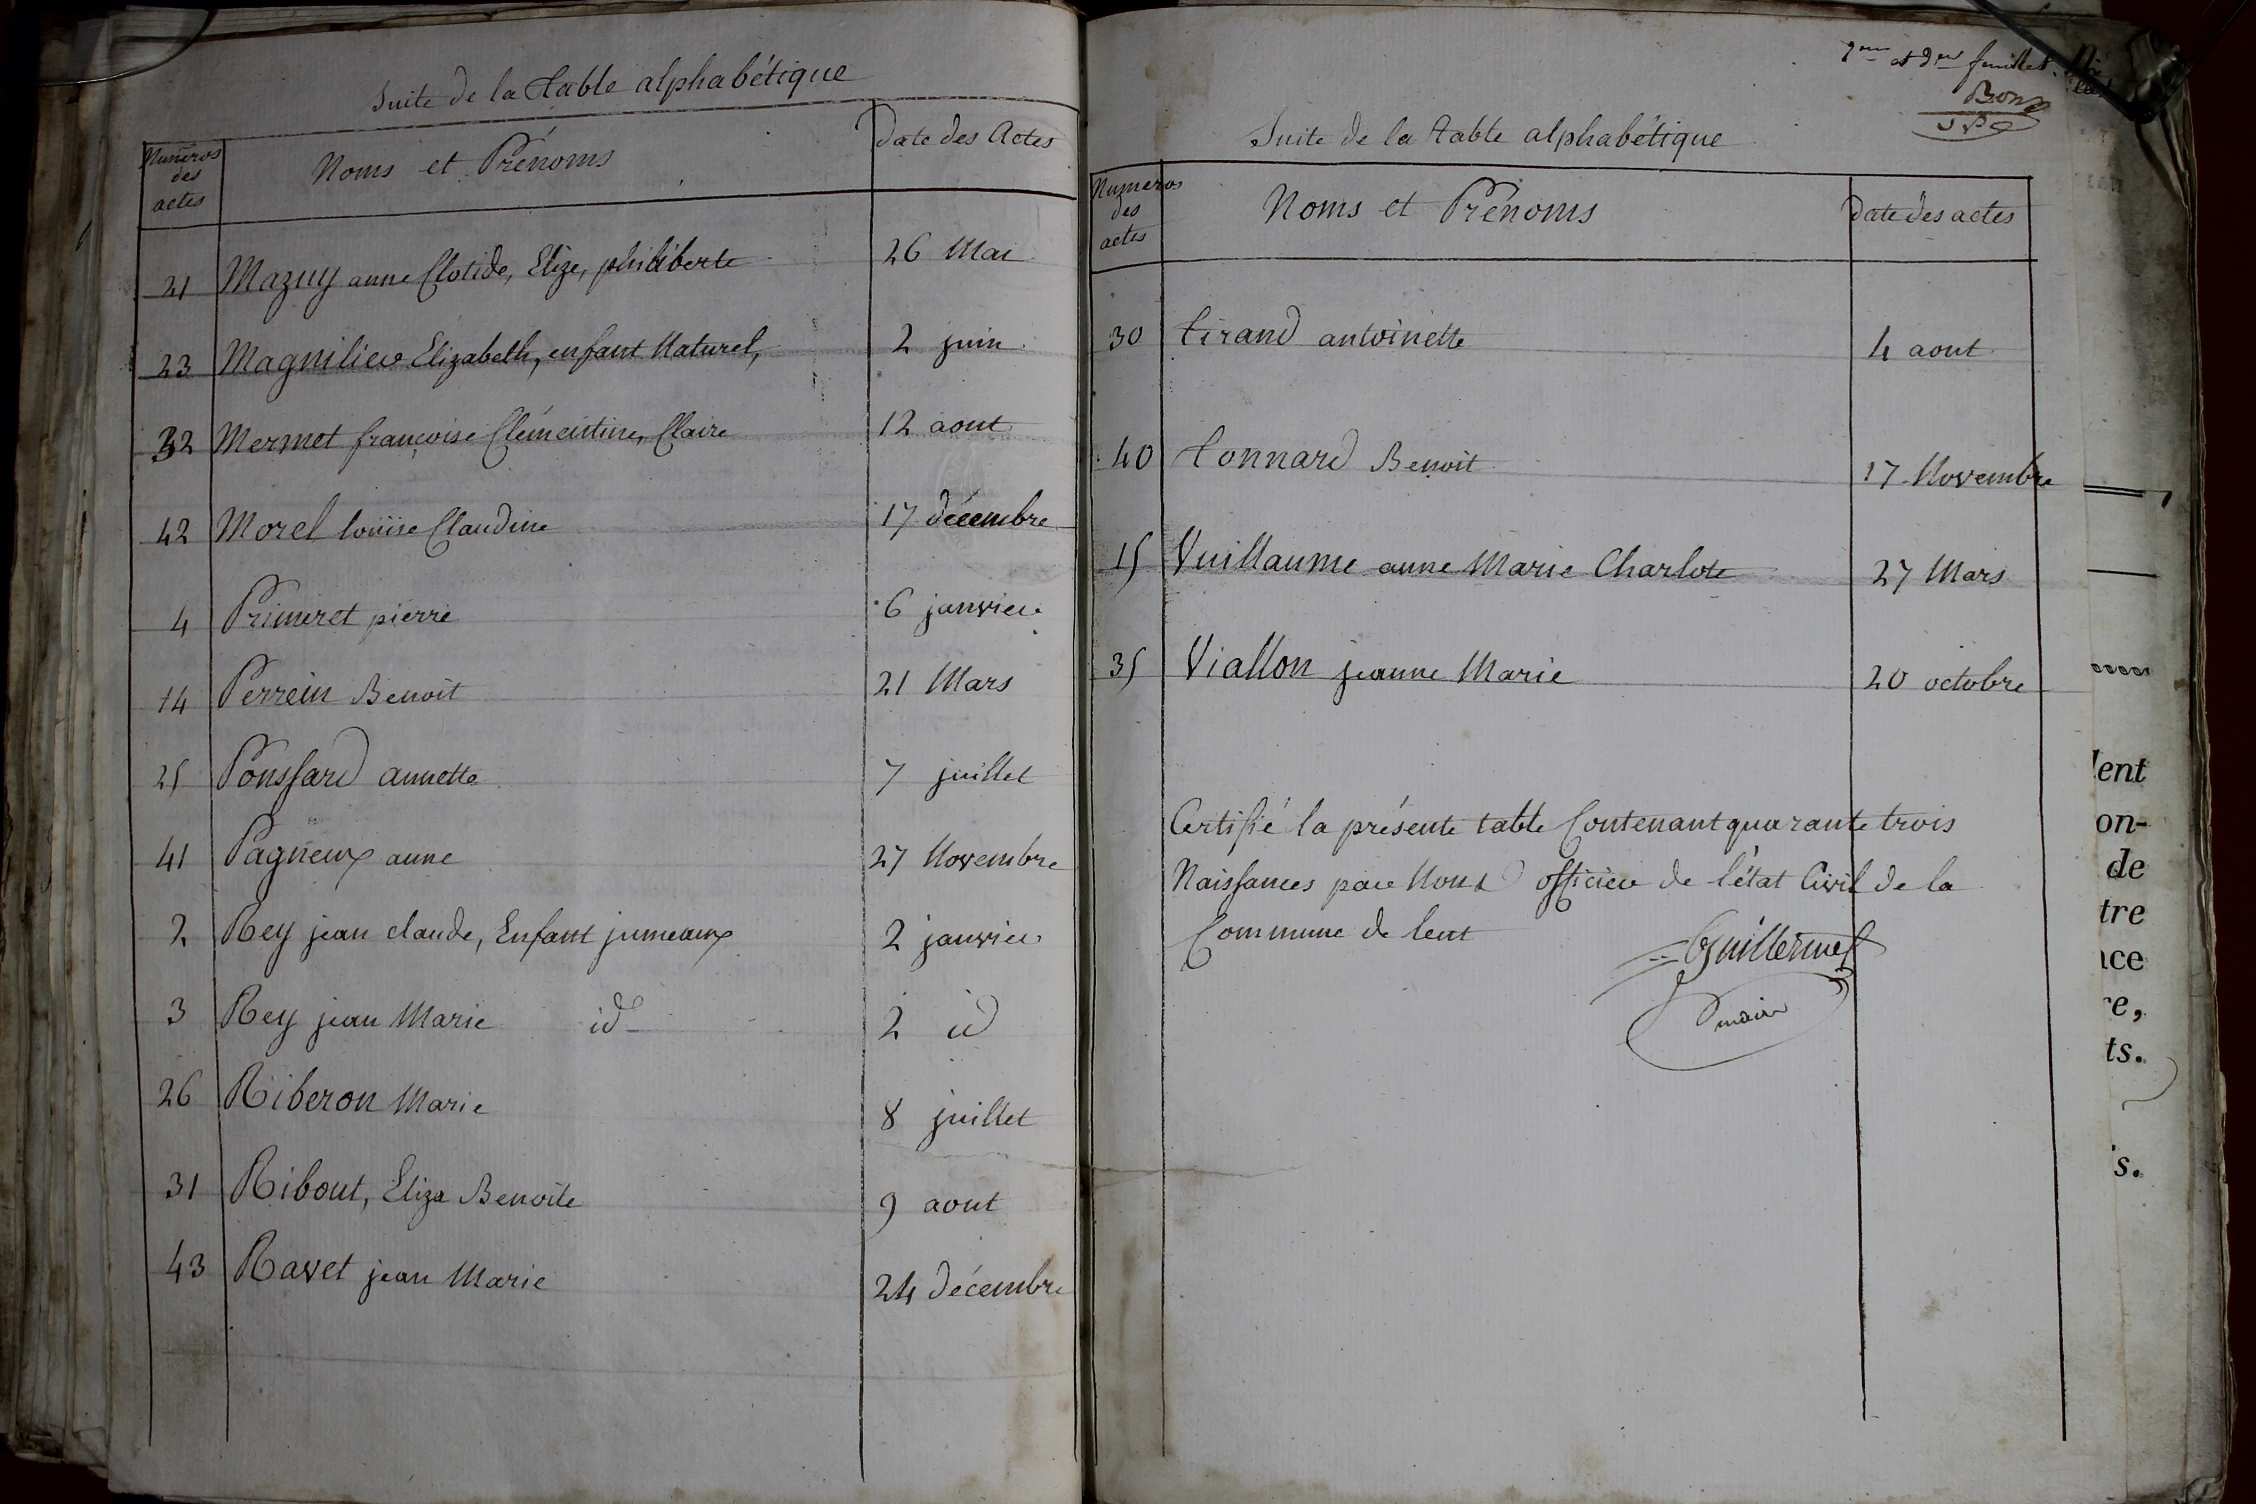 Suite de la table alphabétique
Numéros des actes Noms et Prénoms Date des Actes
21 Mazuy anne Clotide, Elize, philiberte 26 Mai
23 Magnilier Elizabeth, enfant Naturel, 2 juin
32 Mermet françoise Clémentine, Claire 12 aout
42 Morel louise Claudine 17 décembre
4 Primeret pierre 6 janvier
14 Perrein Benoit 21 Mars
25 Poussard annette 7 juillet
41 Pagneux anne 27 Novembre
2 Rey jean claude, Enfant jumeaux 2 janvier
3 Rey jean Marie id 2 id
26 Riberon Marie 8 juillet
31 Ribout, Eliza Benoite 9 aout
43 Ravet jean Marie 24 décembre
et feuillet
Suite de la table alphabétique
Numeros des actes Noms et Prénoms Date des actes
30 tirand antoinette 4 aout
40 tonnard Benoit 17 Novembre
15 Vuillaume anne Marie Charlote 27 Mars
35 Viallon jeanne Marie 20 octobre
Certifié la présente table Contenant quarante trois
Naissances par Nous officier de l'état Civil de la
Commune de lent
Guillermet
maire
lent
on-
de
tre
ce
e,
ts.
s.